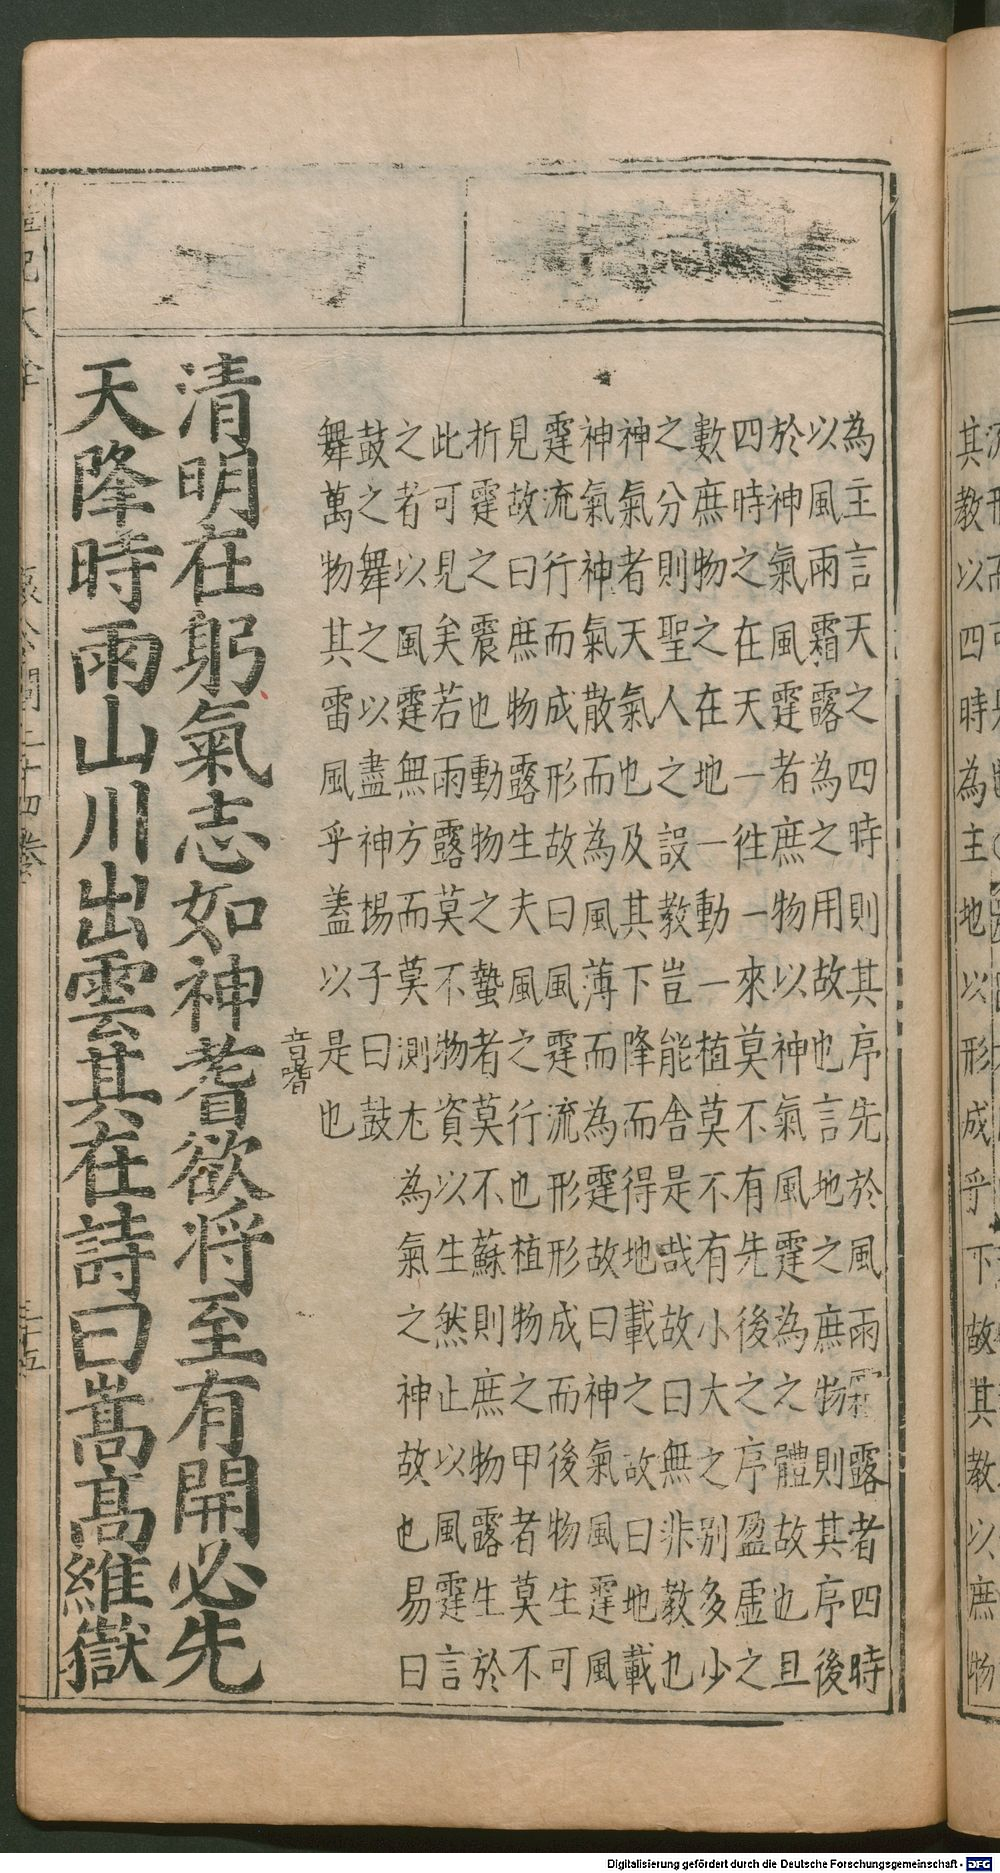 其教以四時為主地以形成乎下故其教以庶物
為主言天之四時則其序先於風雨霜露者四時
以風雨霜露為之用故也言地之庶物則其序後
於神氣風霆者庶物以神氣風霆為之體故也且
四時之在天一徃一來莫不有先後之序盈虛之
數庶物之在地一動一植莫不有小大之别多少
之分則聖人之設教豈能舍是哉故曰無非教也
神氣者天氣也及其下降而得地載之故曰地載
神氣神氣散而為風薄而為霆故曰神氣風霆風
霆流行而成形故曰風霆流形形成而後物生可
見故曰庶物露生夫風之行也植物之甲者莫不
折霆之震也動物之蟄者莫不蘇則庶物露生於
此可見矣若雨露莫不物資以生然止以風霆言
之者以風霆無方而莫測尤為氣之神故也易曰
鼓之舞之以盡神楊子曰鼓
舞萬物其雷風乎蓋以是也
音嗜
清明在躬氣志如神耆欲将至有開必先
天降時雨山川出雲其在詩曰嵩髙維嶽
Digitalisierung gefördert durch die Deutsche Forschungsgemeinschaft - DFG